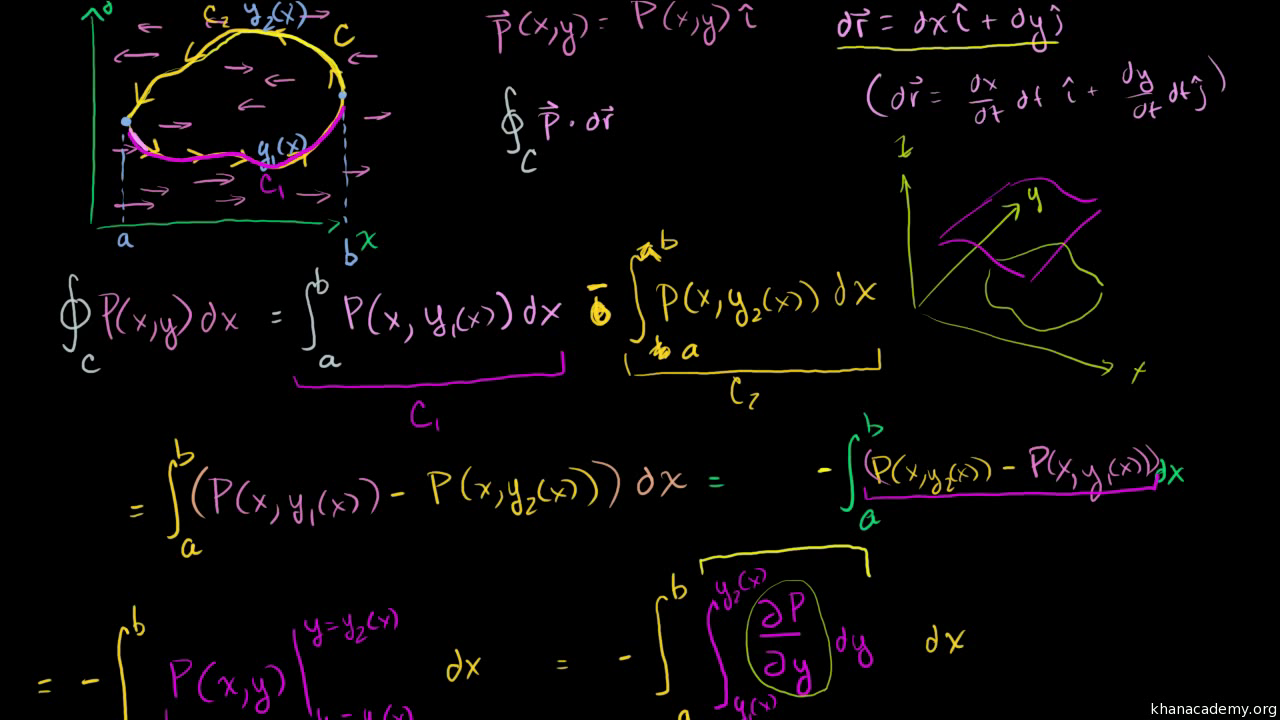 C₂ y₂(x) C
y₁(x)
C₁
a b x
P⃗(x,y) = P(x,y) î
∮_C P⃗ · dr⃗
dr⃗ = dx î + dy ĵ
(dr⃗ = dx/dt dt î + dy/dt dt ĵ)
z
y
x
∮_C P(x,y) dx = ∫_a^b P(x, y₁(x)) dx - ∫_a^b P(x, y₂(x)) dx
C₁ C₂
= ∫_a^b (P(x, y₁(x)) - P(x, y₂(x))) dx = - ∫_a^b (P(x, y₂(x)) - P(x, y₁(x))) dx
= - ∫^b P(x,y) | y = y₂(x) dx = - ∫_a^b ∫_{y₁(x)}^{y₂(x)} ∂P/∂y dy dx
khanacademy.org